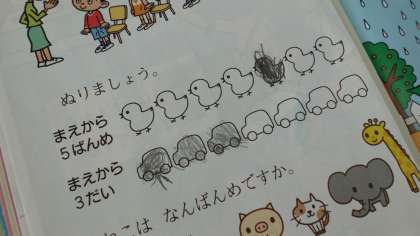 ぬりましょう。
まえから
5ばんめ
まえから
3だい
こは なんばんめですか。